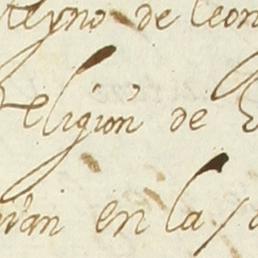 Reyno de leon
Religion de
en la